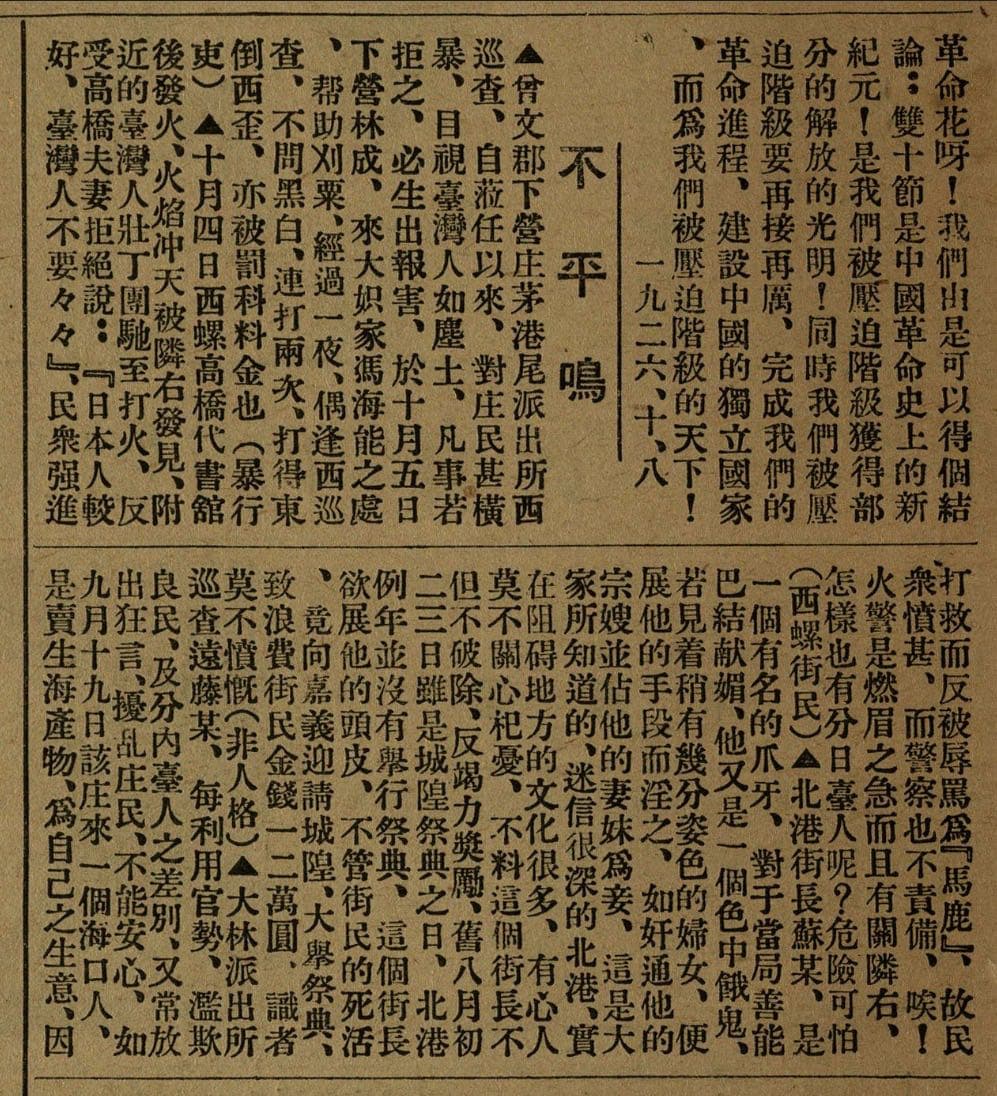 革命花呀！我們由是可以得個結
論：雙十節是中國革命史上的新
紀元！是我們被壓迫階級獲得部
分的解放的光明！同時我們被壓
迫階級要再接再厲、完成我們的
革命進程、建設中國的獨立國家
、而爲我們被壓迫階級的天下！
一九二六、十、八
不平鳴
▲曾文郡下營庄茅港尾派出所西
巡查、自蒞任以來、對庄民甚橫
暴、目視臺灣人如塵土、凡事若
拒之、必生出報害、於十月五日
下營林成、來大㭲家馮海能之處
、帮助刈粟、經過一夜、偶逢西巡
查、不問黑白、連打兩次、打得東
倒西歪、亦被罰科料金也（暴行
吏）▲十月四日西螺高橋代書舘
後發火、火焰冲天被隣右發見、附
近的臺灣人壯丁團馳至打火、反
受高橋夫妻拒絕說：『日本人較
好、臺灣人不要々々』、民衆强進
打救而反被辱罵爲『馬鹿』、故民
衆憤甚、而警察也不責備、唉！
火警是燃眉之急而且有關隣右、
怎樣也有分日臺人呢？危險可怕
（西螺街民）▲北港街長蘇某、是
一個有名的爪牙、對于當局善能
巴結献媚、他又是一個色中餓鬼、
若見着稍有幾分姿色的婦女、便
展他的手段而淫之、如奸通他的
宗嫂並佔他的妻妹爲妾、這是大
家所知道的、迷信很深的北港、實
在阻碍地方的文化很多、有心人
莫不關心杞憂、不料這個街長不
但不破除、反竭力奬勵、舊八月初
二三日雖是城隍祭典之日、北港
例年並沒有舉行祭典、這個街長
欲展他的頭皮、不管街民的死活
、竟向嘉義迎請城隍、大舉祭典、
致浪費街民金錢一二萬圓、識者
莫不憤慨（非人格）▲大林派出所
巡查遠藤某、每利用官勢、濫欺
良民、及分內臺人之差別、又常放
出狂言、擾乱庄民、不能安心、如
九月十九日該庄來一個海口人、
是賣生海產物、爲自己之生意、因